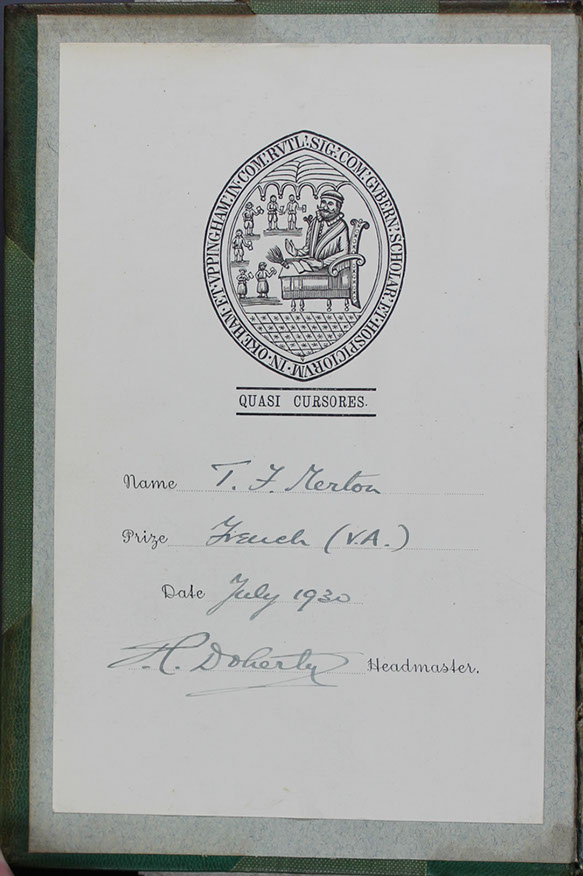 SIG: COM: GVBERN: SCHOLAR: ET·HOSPICIORVM·IN·OKEHAM·ET·VPPINGHAM·IN·COM: RVTL:
QUASI CURSORES.
Name T. F. Merton
Prize French (V.A.)
Date July 1930
H. Doherty Headmaster.